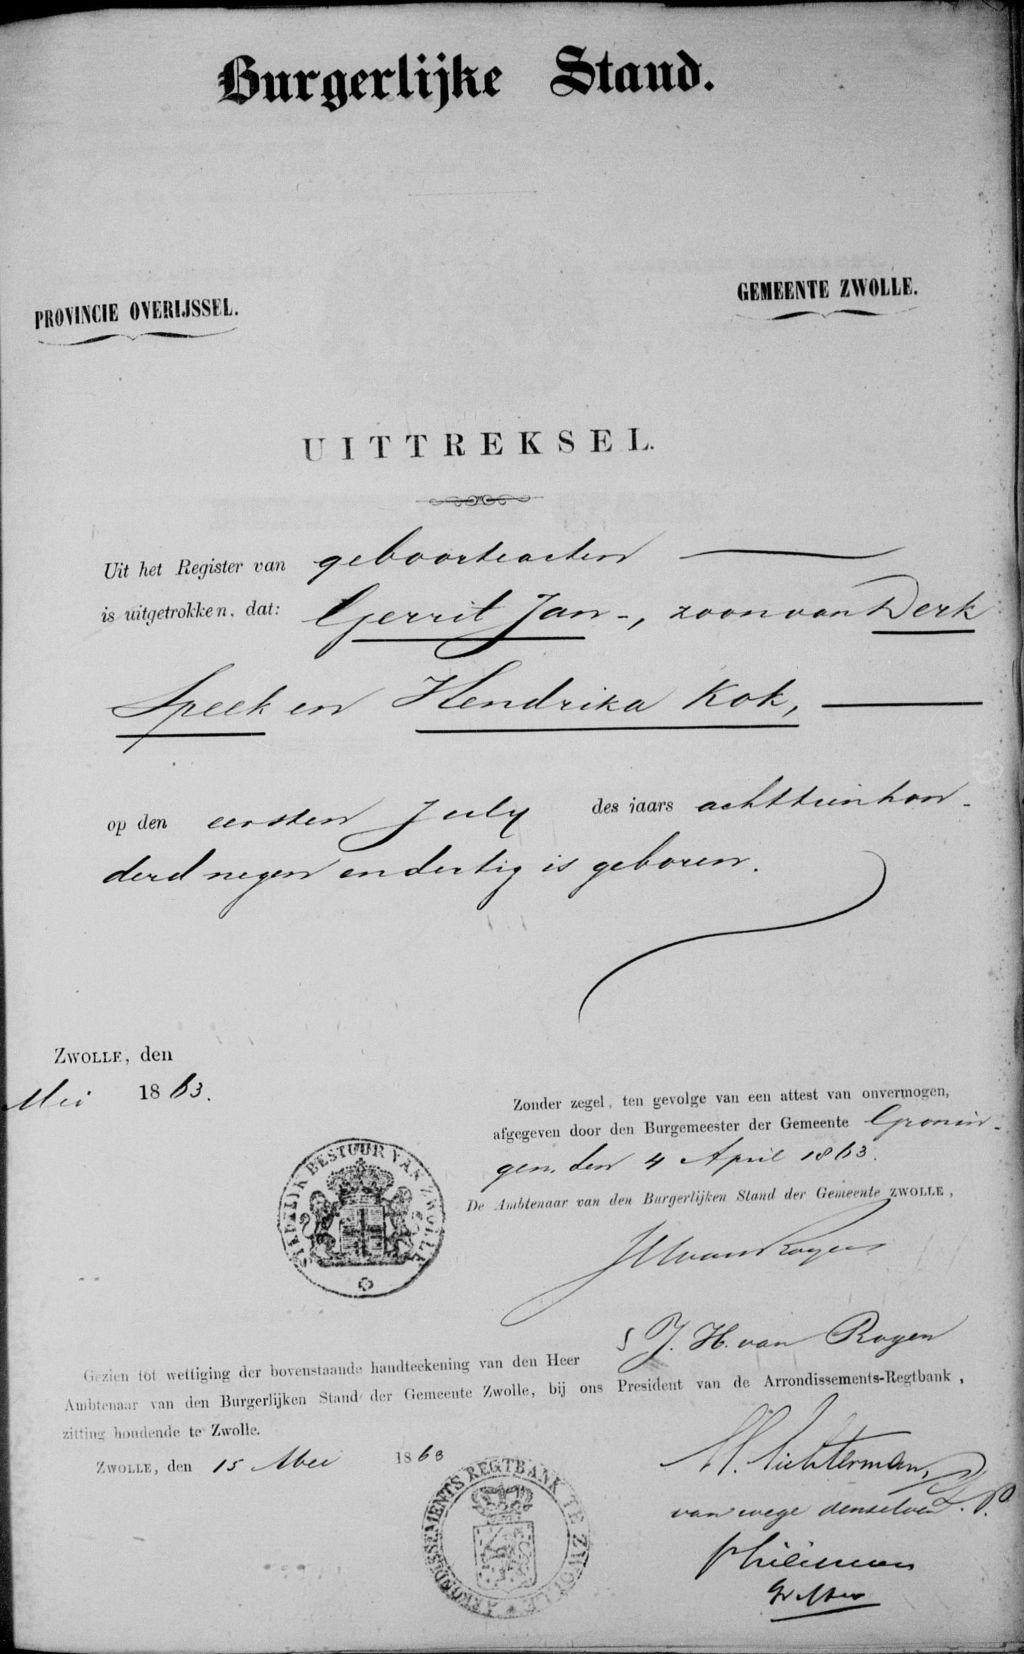 Burgerlijke Stand.
PROVINCIE OVERIJSSEL.
GEMEENTE ZWOLLE.
UITTREKSEL.
Uit het Register van geboorteacten
is uitgetrokken, dat: Gerrit Jan -, zoon van Derk
Speek en Hendrika Kok,
op den eersten July des jaars achttienhon-
derd negen en dertig is geboren.
ZWOLLE, den
Mei 1863.
Zonder zegel, ten gevolge van een attest van onvermogen,
afgegeven door den Burgemeester der Gemeente Gronin-
gen, den 4 April 1863.
De Ambtenaar van den Burgerlijken Stand der Gemeente ZWOLLE,
STEDELYK BESTUUR VAN ZWOLLE
JHvanRoyen
J. H. van Royen
Gezien tot wettiging der bovenstaande handteekening van den Heer
Ambtenaar van den Burgerlijken Stand der Gemeente Zwolle, bij ons President van de Arrondissements-Regtbank,
zitting houdende te Zwolle.
ZWOLLE, den 15 Mei 1863
ARRONDISSEMENTS REGTBANK TE ZWOLLE
van wege denzelven